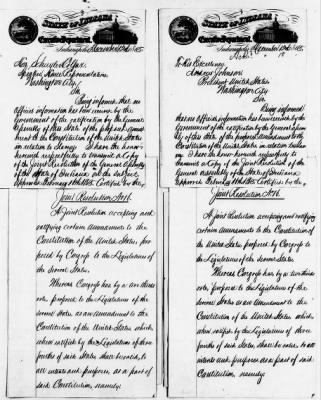 STATE OF INDIANA
Executive Department
Hon Schuyler Colfax
Speaker House Representatives
Washington City
Sir
Being informed that no
official information has been received by the
Government of the ratification by the General
Assembly of this State of the proposed amend
ment to the Constitution of the United States
in relation to Slavery I have the honor
herewith respectfully to transmit a Copy
of the Joint Resolution of the General Assembly
of the State of Indiana on the subject
approved February Certified by the
Joint Resolution
A Joint Resolution accepting and
ratifying certain Amendment to the
Constitution of the United States, pro
posed by Congress to the Legislatures of
the several States.
Whereas Congress has by a two thirds
vote, proposed to the Legislatures of the
several States, as an amendment to the
Constitution of the United States, which
when ratified by the Legislatures of three
fourths of said States shall be valid, to
all intents and purposes, as a part of
said Constitution, namely:
STATE OF INDIANA
Executive Department
To His Excellency
Andrew Johnson
President United States
Washington City
Sir
Being informed
that no official information has been received by the
Government of the ratification by the General Assem
bly of this State of the proposed amendment to the
Constitution of the United States in relation to Slav
ery I have the honor herewith respectfully to
transmit a Copy of the Joint Resolution of the
General Assembly of the State of Indiana
approved February Certified by the
Joint Resolution
A Joint Resolution accepting and ratifying
certain Amendment to the Constitution of
the United States proposed by Congress to
the Legislatures of the several States.
Whereas Congress has by a two thirds
vote, proposed to the Legislatures of the
several States as an amendment to the
Constitution of the United States which
when ratified by the Legislatures of three
fourths of said States, shall be valid, to all
intents and purposes as a part of said
Constitution, namely: